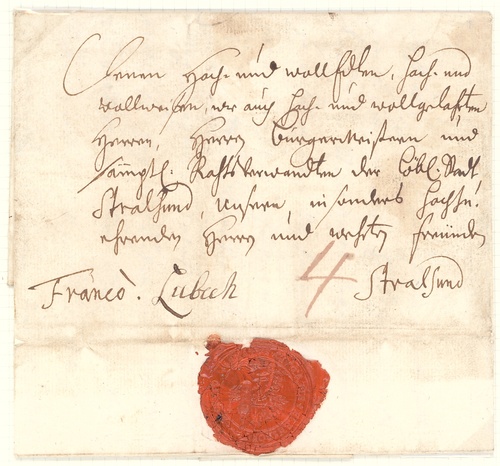 Denen Hoch- und wollEdlen, hoch- und
wollweisen, wie auch hoch- und wollgelahrten
Herren, Herren Bürgermeistern und
sämptl. Rahtsverwandten der löbl. Stadt
Stralsund, unsern insonders hochzu-
ehrenden Herrn und wehrten freunden
Franco. Lubech 4 Stralsund